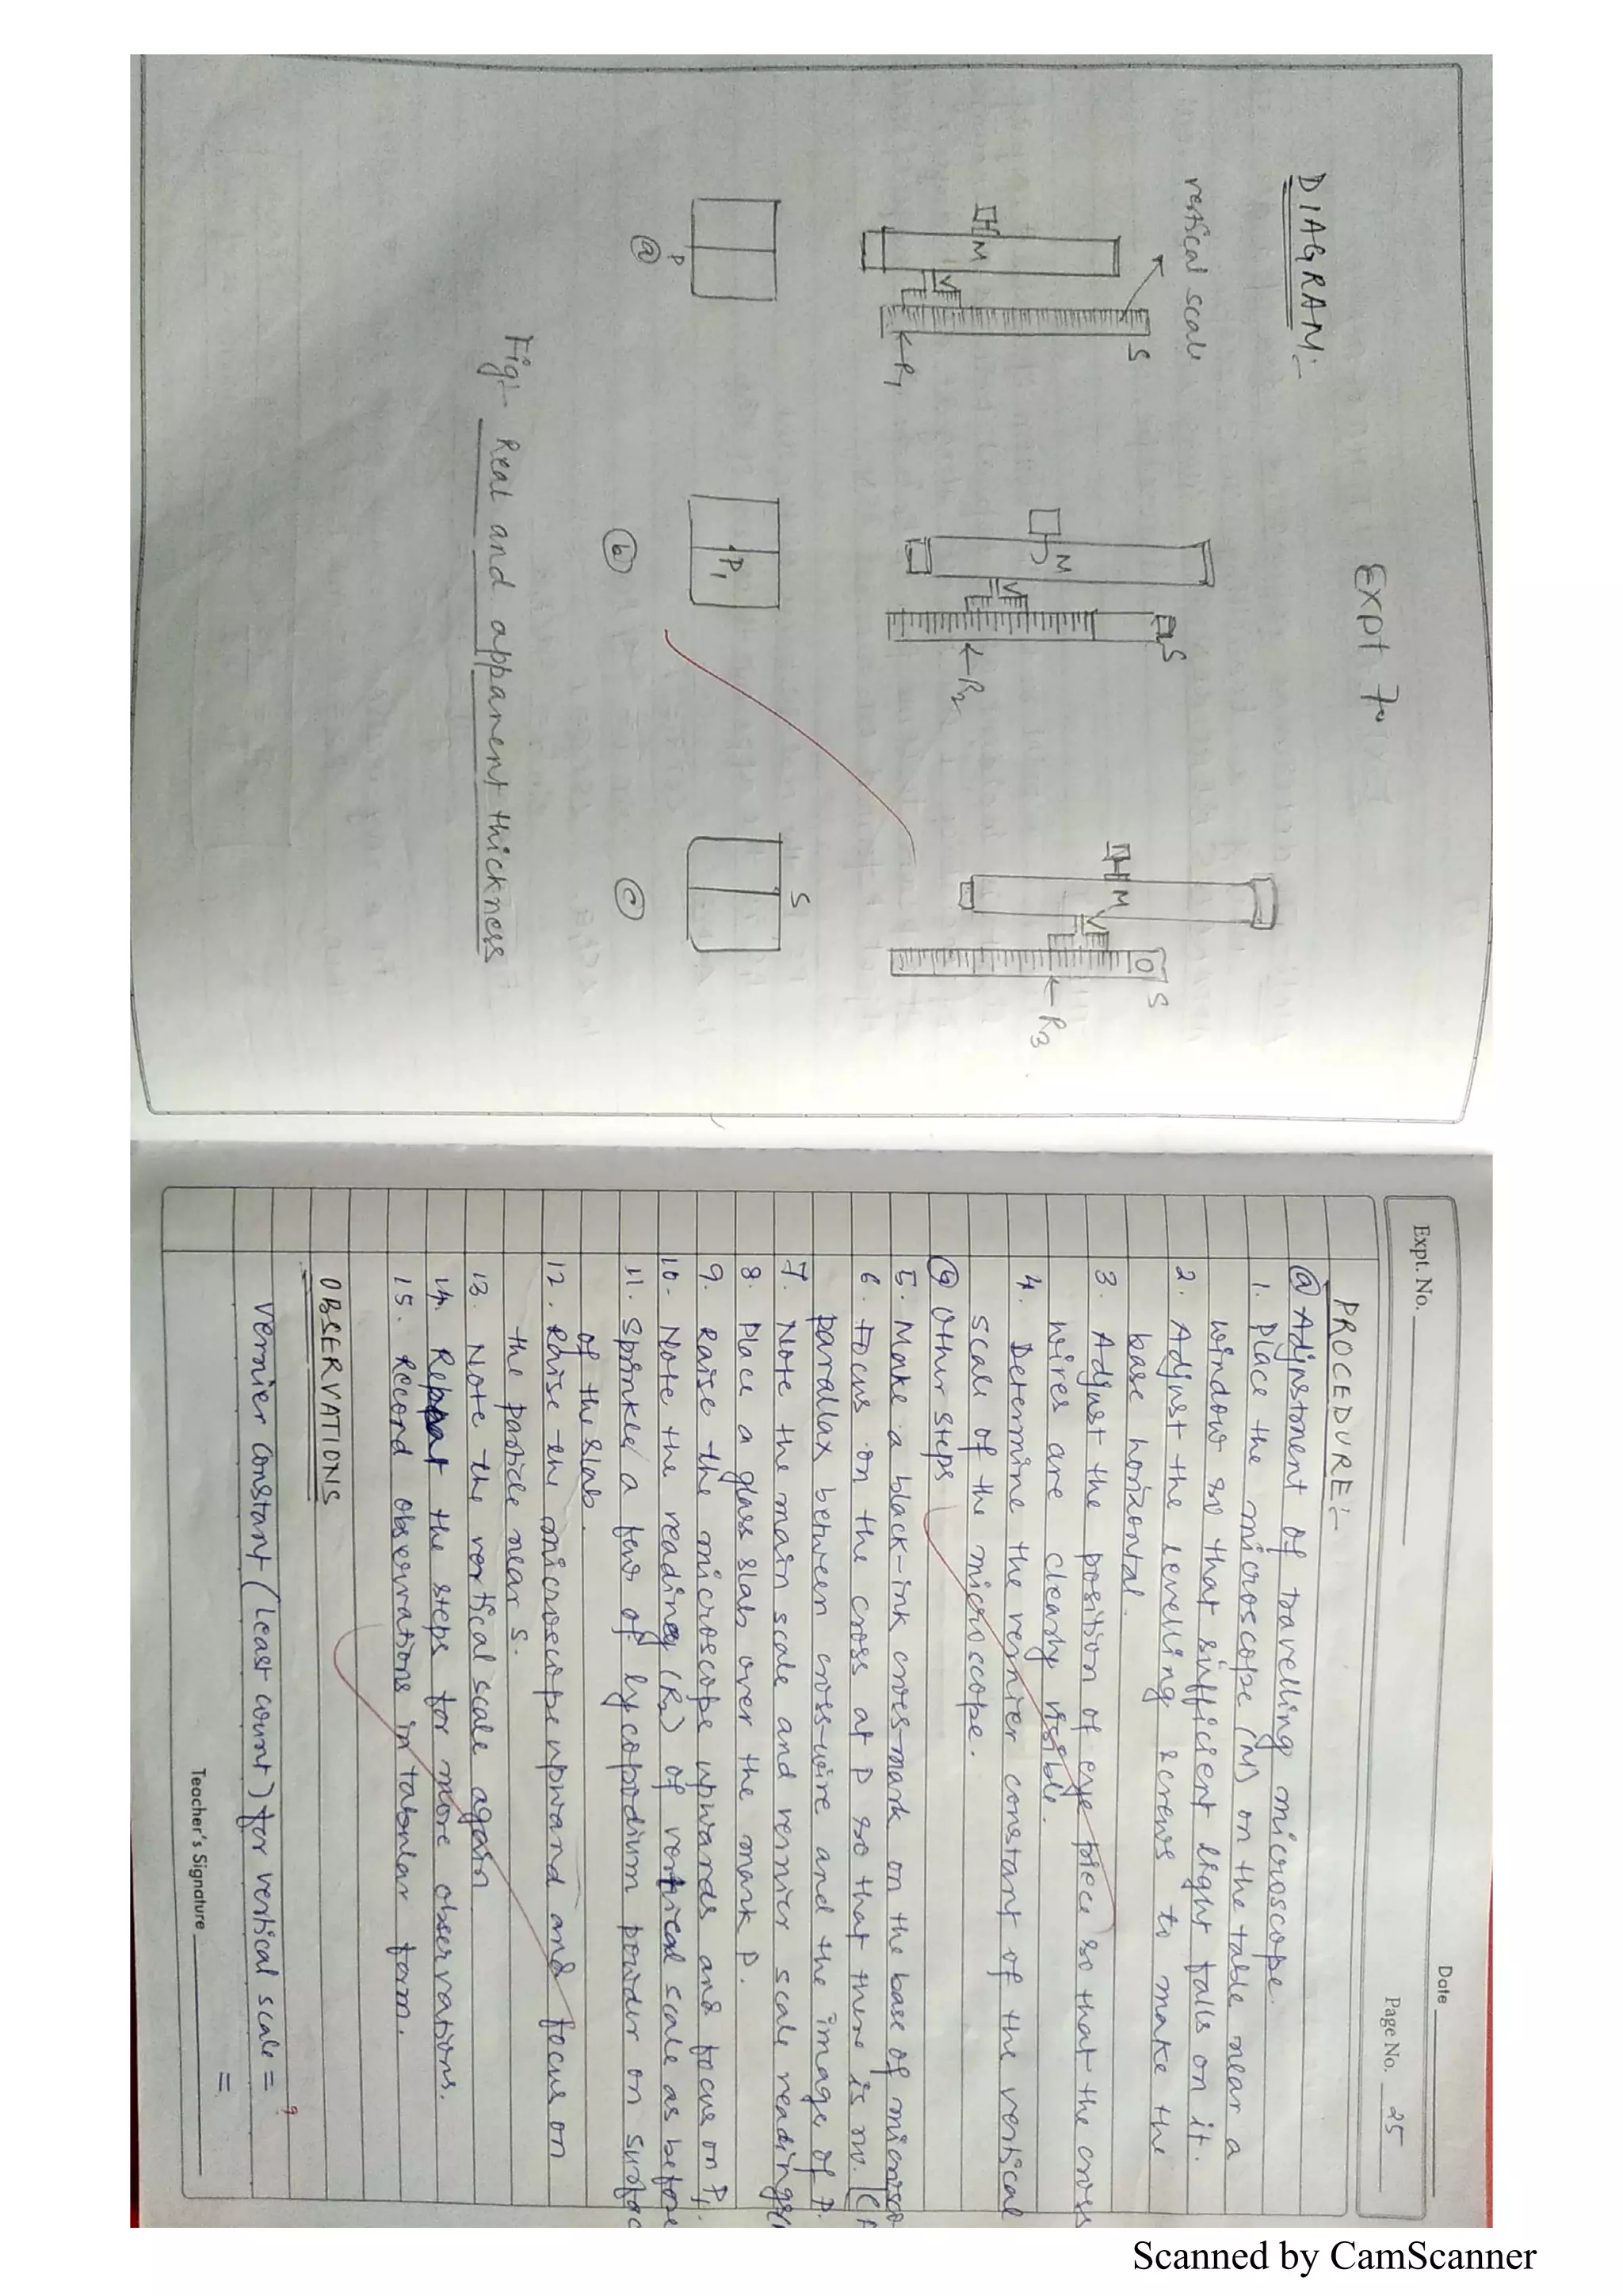 Expt 7.
DIAGRAM:-
vertical scale
S
S
S
M
M
M
V
V
V
R1
R2
R3
P
P1
S
a
b
c
Fig:- Real and apparent thickness
Date
Expt. No.
Page No. 25
PROCEDURE:-
a Adjustment of travelling microscope.
1. Place the microscope (M) on the table near a
window so that sufficient light falls on it.
2. Adjust the levelling screws to make the
base horizontal.
3. Adjust the position of eye piece so that the cross
wires are clearly visible.
4. Determine the vernier constant of the vertical
scale of the microscope.
b Other steps
5. Make a black-ink cross-mark on the base of microsco
6. Focus on the cross at P so that there is no
parallax between cross-wire and the image of P.
7. Note the main scale and vernier scale readings
8. Place a glass slab over the mark P.
9. Raise the microscope upwards and focus on P1.
10. Note the reading (R2) of vertical scale as before
11. Sprinkle a few of lycopodium powder on surfac
of the slab.
12. Raise the microscope upward and focus on
the particle near S.
13. Note the vertical scale again
14. Repeat the steps for more observations.
15. Record observations in tabular form.
OBSERVATIONS
Vernier constant (least count) for vertical scale = ?
=
Teacher's Signature
Scanned by CamScanner